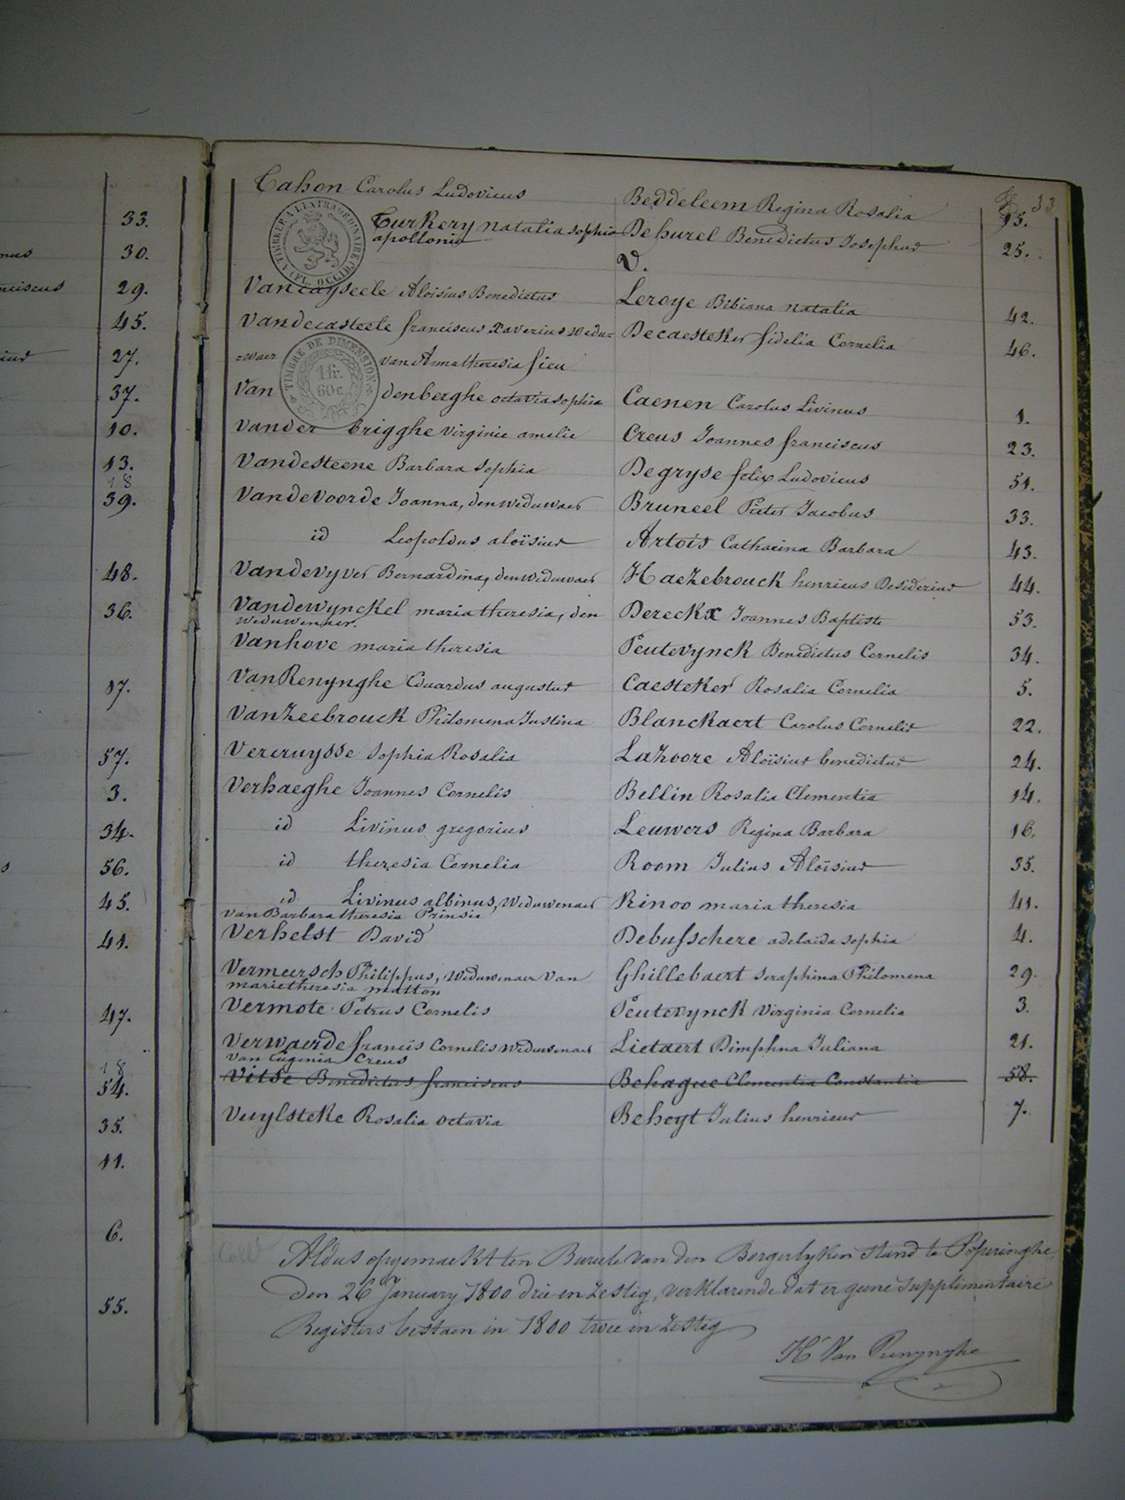 33
Cahon Carolus Ludovicus Beddeleem Regina Rosalia 15.
Turkery natalia sophia Dehurel Benedictus Josephus 25.
apollonia
V.
Vancayseele Aloïsius Benedictus Leroye Bibiana natalia 42.
Vandecasteele franciscus Xaverius wedu= Decaesteker fidelia Cornelia 46.
=waer van Anna theresia fieu
Van denberghe octavia sophia Caenen Carolus Livinus 1.
Vander brigghe virginie amelie Creus Joannes franciscus 23.
Vandesteene Barbara sophia Degryse felix Ludovicus 51.
Vandevoorde Joanna, den weduwaer Bruneel Pieter Jacobus 33.
id Leopoldus aloïsius Artois Catharina Barbara 43.
Vandevyver Bernardina, den weduwaer Haezebrouck henricus Desiderius 44.
Vandewynckel maria theresia, den Dereckx Joannes Baptiste 53.
weduwenaer.
Vanhove maria theresia Peutevynck Benedictus Cornelis 34.
Van Renynghe Eduardus augustus Caesteker Rosalia Cornelia 5.
Vanzeebrouck Philomena Justina Blanckaert Carolus Cornelis 22.
Vercruysse sophia Rosalia Lahoore Aloïsius benedictus 24.
Verhaeghe Joannes Cornelis Bellin Rosalia Clementia 14.
id Livinus gregorius Leuwers Regina Barbara 16.
id theresia Cornelia Room Julius Aloïsius 35.
id Livinus albinus, Weduwenaer Rinoo maria theresia 41.
van Barbara theresia Prinsia
Verhelst David Debusschere adelaida sophia 4.
Vermeersch Philippus, Weduwenaer van Ghillebaert seraphina Philomena 29.
marie theresia matton
Vermote Petrus Cornelis Peutevynck Virginia Cornelia 3.
Verwaerde francis Cornelis weduwenaer Lietaert Dimphna Juliana 21.
van Eugenia Creus
Vitse Benedictus franciscus Behague Clementia Constantia 58.
Vuylsteke Rosalia octavia Beheyt Julius henricus 7.
Aldus opgemaekt ten Bureele van den Burgerlyken stand te Poperinghe
den 26 January 1800 drie en zestig, verklarende dat er geene supplimentaire
Registers bestaen in 1800 twee en zestig
TIMBRE DE DIMENSION
1 fr.
60 c.
33.
30.
29.
45.
27.
37.
10.
13.
18
39.
48.
36.
17.
57.
3.
34.
56.
45.
41.
47.
18
54.
35.
11.
6.
55.